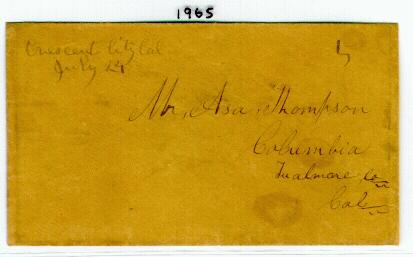 1965
Crescent City Cal
July 24
5
Mr. Asa Thompson
Columbia
Tualmore Co
Cal